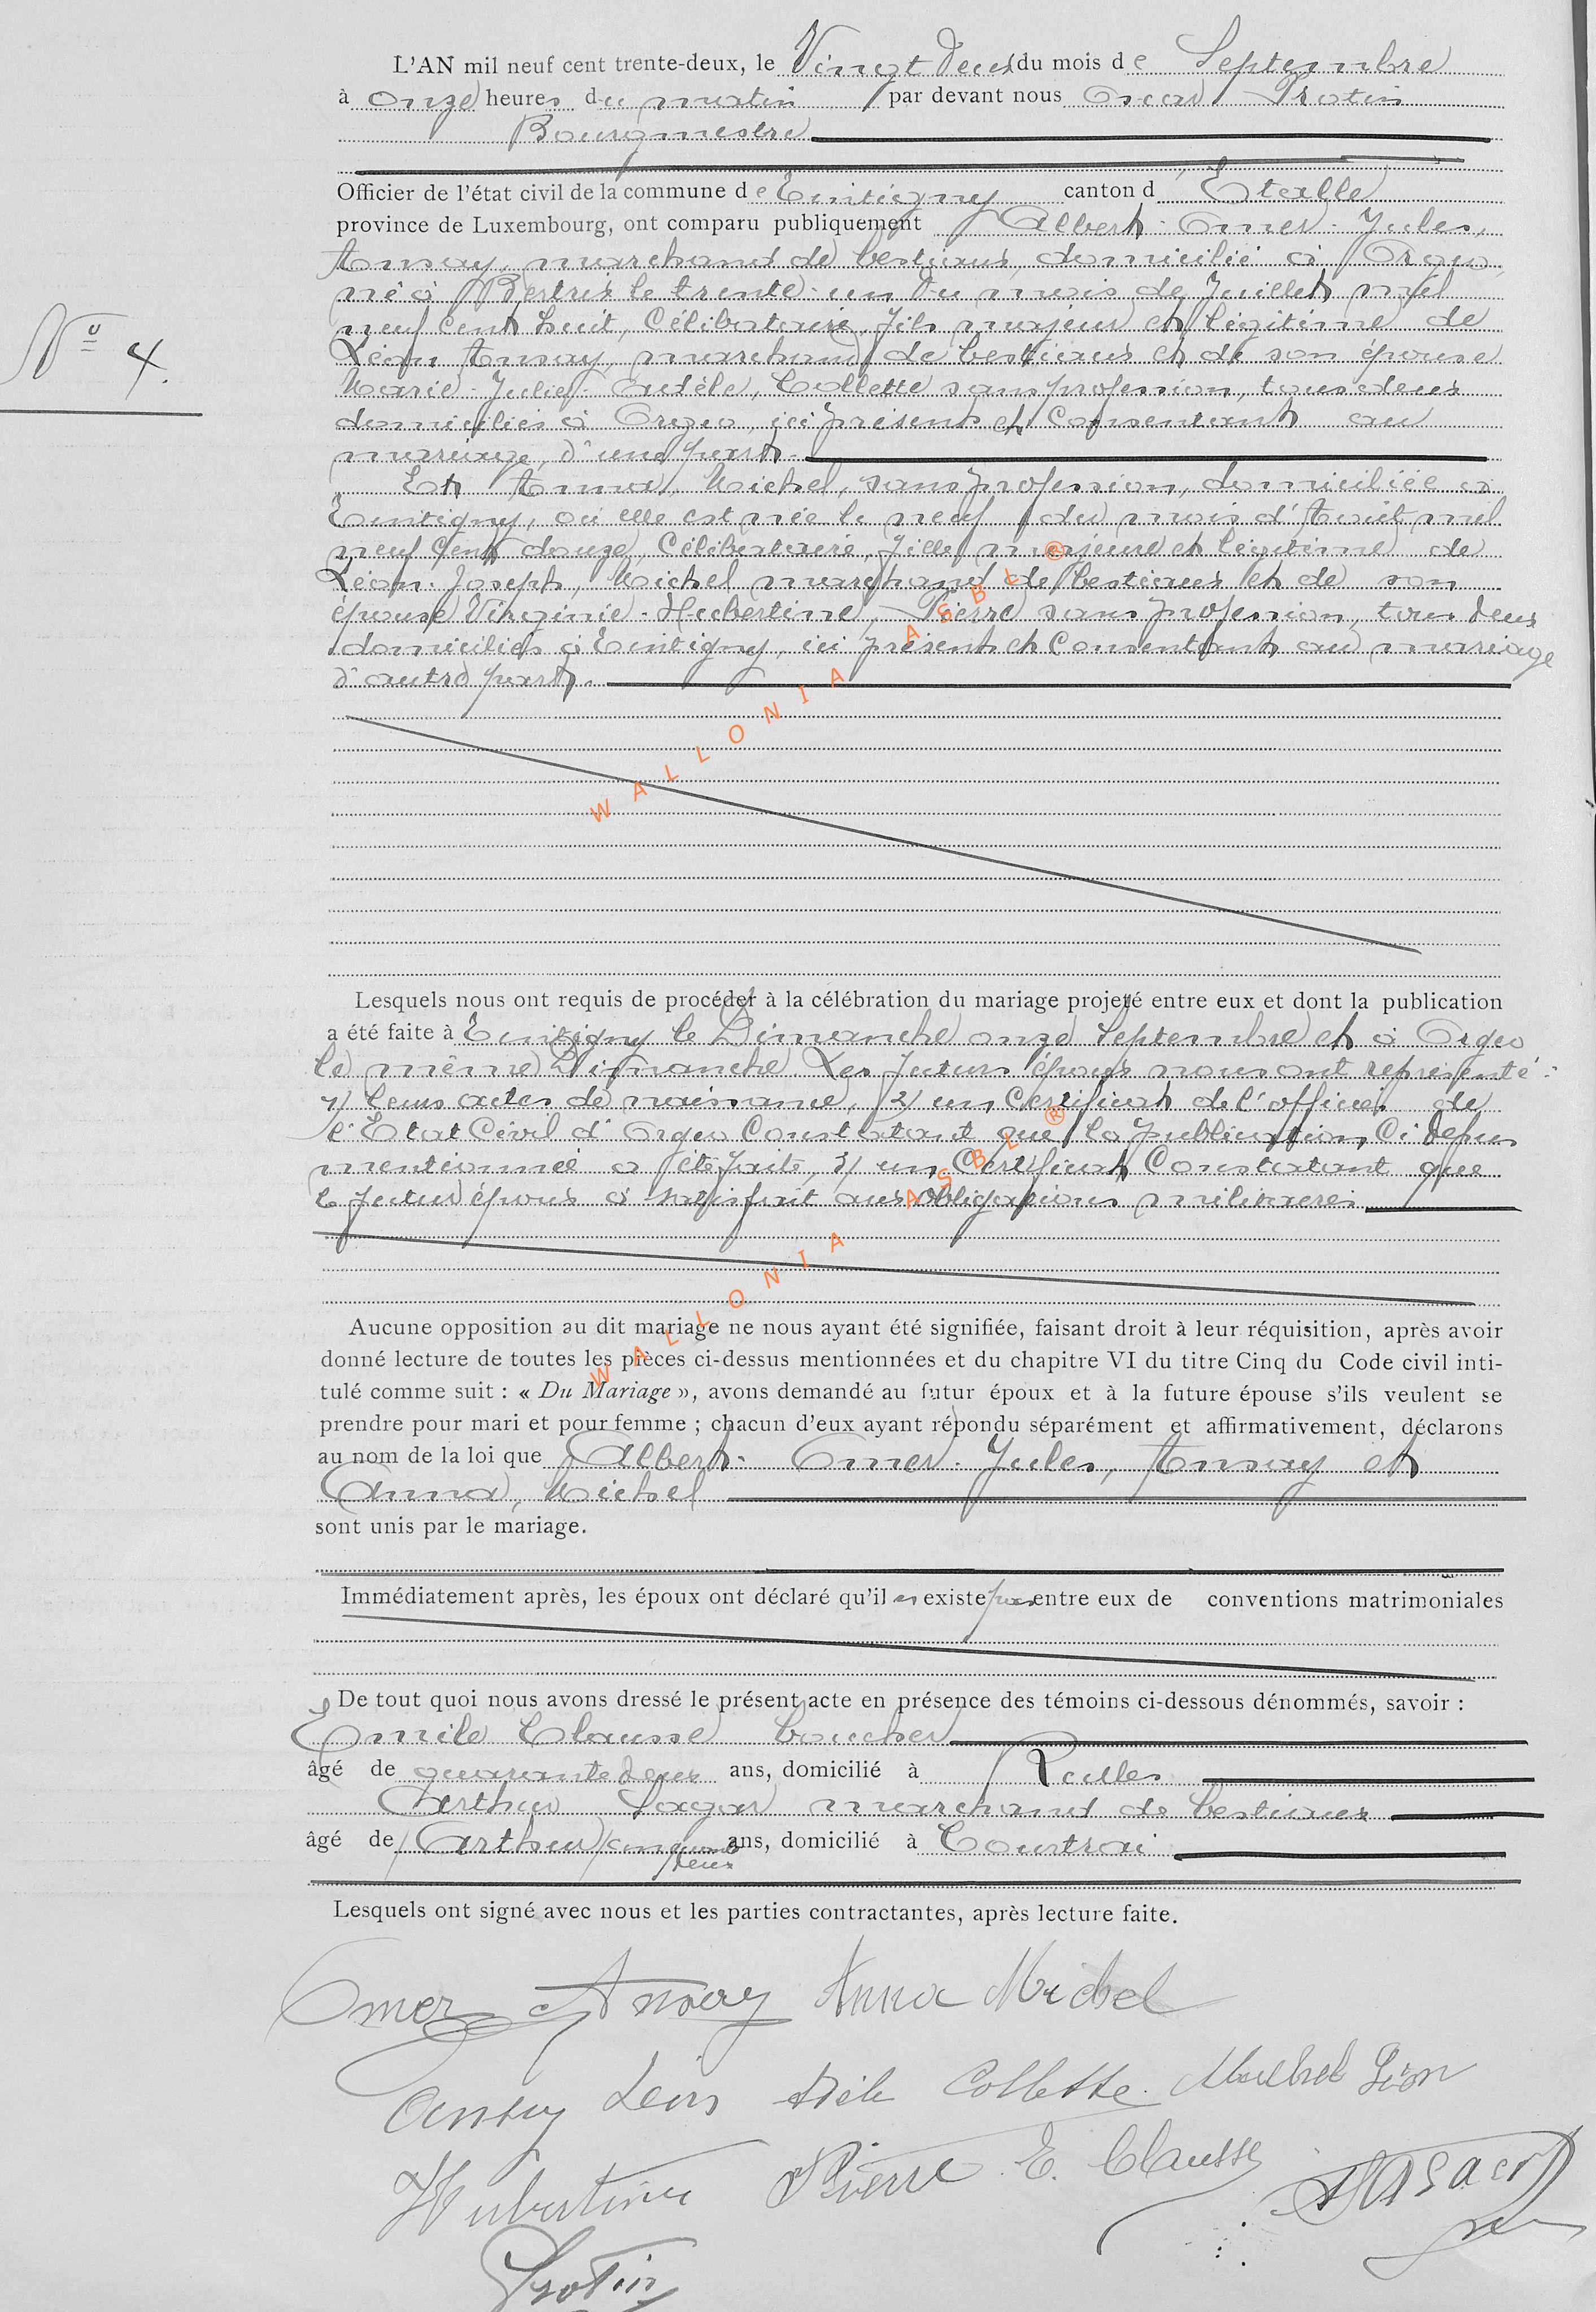 L'AN mil neuf cent trente-deux, le Vingt deux du mois de Septembre
à onze heures du matin par devant nous Oscar Protin
Bourgmestre
Officier de l'état civil de la commune de Tintigny canton d'Etalle
province de Luxembourg, ont comparu publiquement Albert-Omer-Jules,
Ansay, marchand de bestiaux, domicilié à Orgeo,
né à Bertrix le trente-un du mois de Juillet mil
neuf cent huit, Célibataire, fils majeur et légitime de
Léon Ansay, marchand de bestiaux et de son épouse
Marie-Julie Adèle, Collette sans profession, tous deux
domiciliés à Orgeo, ici présents et consentants au
mariage, d'une part.
Et Anna, Michel, sans profession, domiciliée à
Tintigny, où elle est née le neuf du mois d'Août mil
neuf cent douze, Célibataire, fille majeure et légitime de
Léon-Joseph, Michel marchand de bestiaux et de son
épouse Virginie-Hubertine, Pierre sans profession, tous deux
domiciliés à Tintigny, ici présents et consentants au mariage
d'autre part.
N° 4.
Lesquels nous ont requis de procéder à la célébration du mariage projeté entre eux et dont la publication
a été faite à Tintigny le Dimanche onze Septembre et à Orgeo
le même Dimanche. Les futurs époux nous ont représenté :
1) leurs actes de naissance, 2) un Certificat de l'officier de
l'Etat Civil d'Orgeo Constatant que la publication Ci dessus
mentionnée a été faite, 3) un Certificat Constatant que
le futur époux a satisfait aux obligations militaires
Aucune opposition au dit mariage ne nous ayant été signifiée, faisant droit à leur réquisition, après avoir
donné lecture de toutes les pièces ci-dessus mentionnées et du chapitre VI du titre Cinq du Code civil inti-
tulé comme suit : « Du Mariage », avons demandé au futur époux et à la future épouse s'ils veulent se
prendre pour mari et pour femme ; chacun d'eux ayant répondu séparément et affirmativement, déclarons
au nom de la loi que Albert-Omer-Jules, Ansay et
Anna, Michel
sont unis par le mariage.
Immédiatement après, les époux ont déclaré qu'il n'existe pas entre eux de conventions matrimoniales
De tout quoi nous avons dressé le présent acte en présence des témoins ci-dessous dénommés, savoir :
Emile Clausse boucher
âgé de quarante deux ans, domicilié à Rulles
Arthur marchand de bestiaux
âgé de Arthur cinquante deux ans, domicilié à Courtrai
Lesquels ont signé avec nous et les parties contractantes, après lecture faite.
Omer Ansay Anna Michel
Ansay Léon Adèle Collette. Michel Léon
Hubertine Pierre E. Clausse
Protin
WALLONIA ASBL ®
WALLONIA ASBL ®